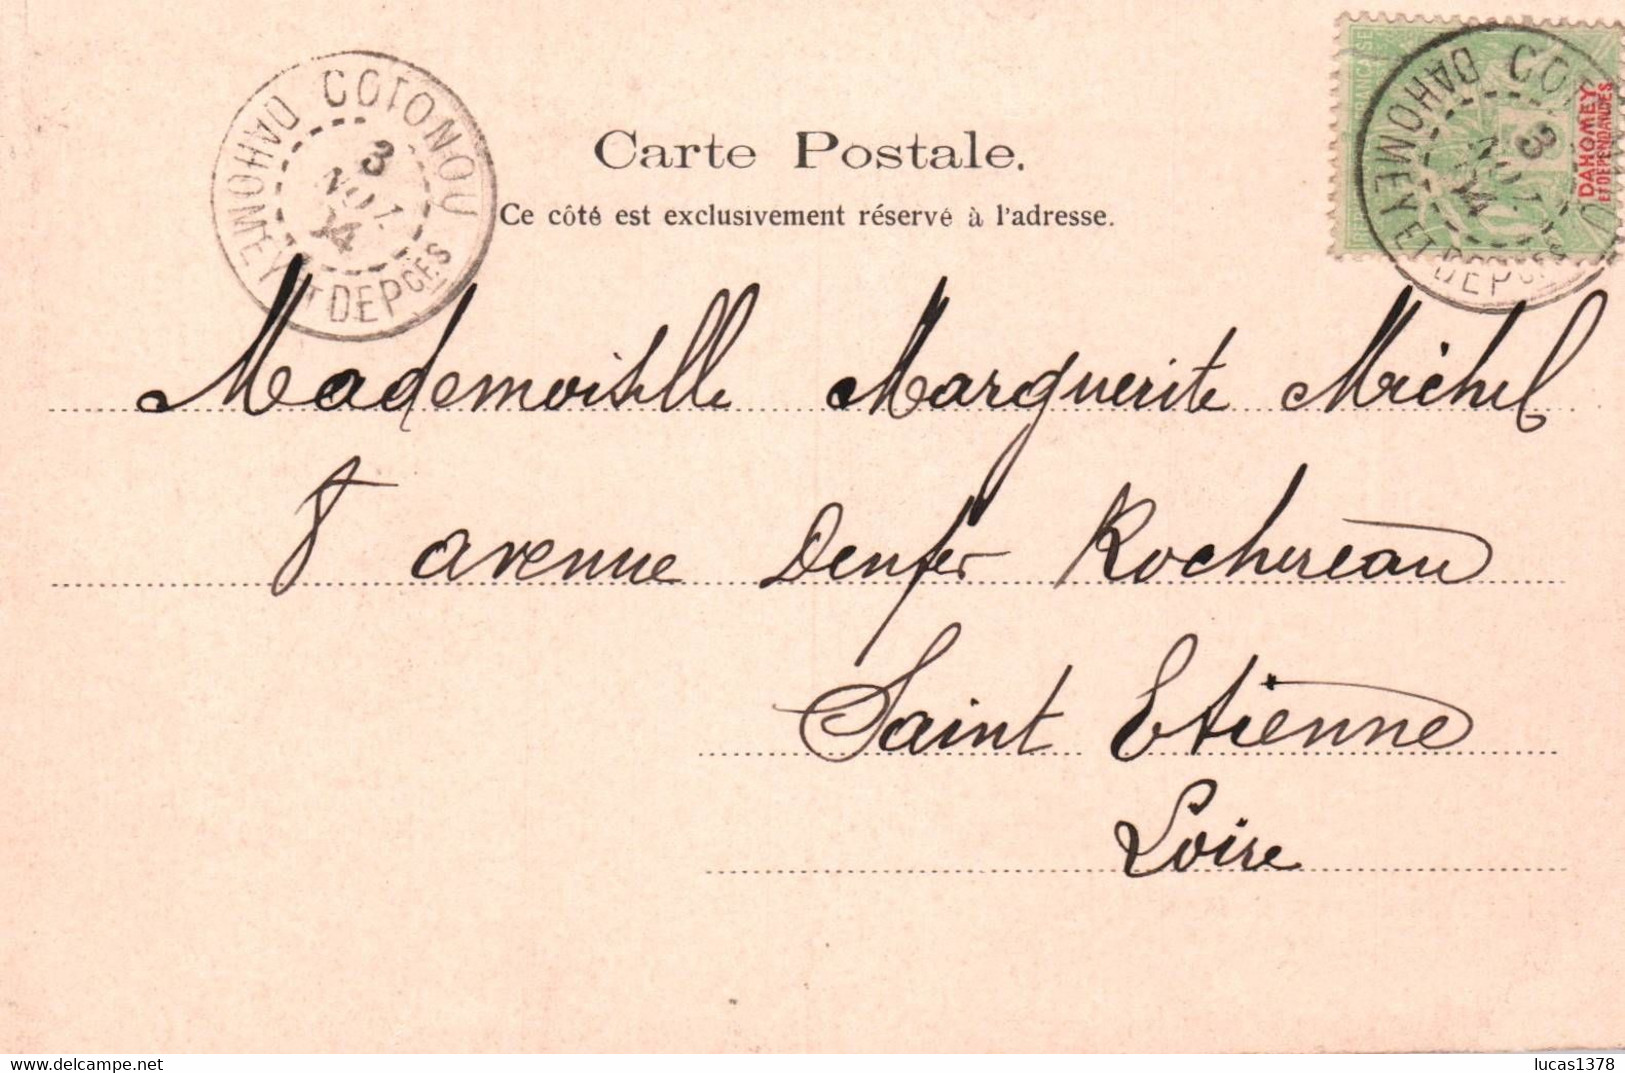 COTONOU
DAHOMEY ET DEPCES
3
NOV
04
COTONOU
DAHOMEY ET DEPCES
3
NOV
04
DAHOMEY
ET DÉPENDANCES
Carte Postale.
Ce côté est exclusivement réservé à l'adresse.
Mademoiselle Marguerite Michel
8 avenue Denfer Rochereau
Saint Etienne
Loire
lucas1378